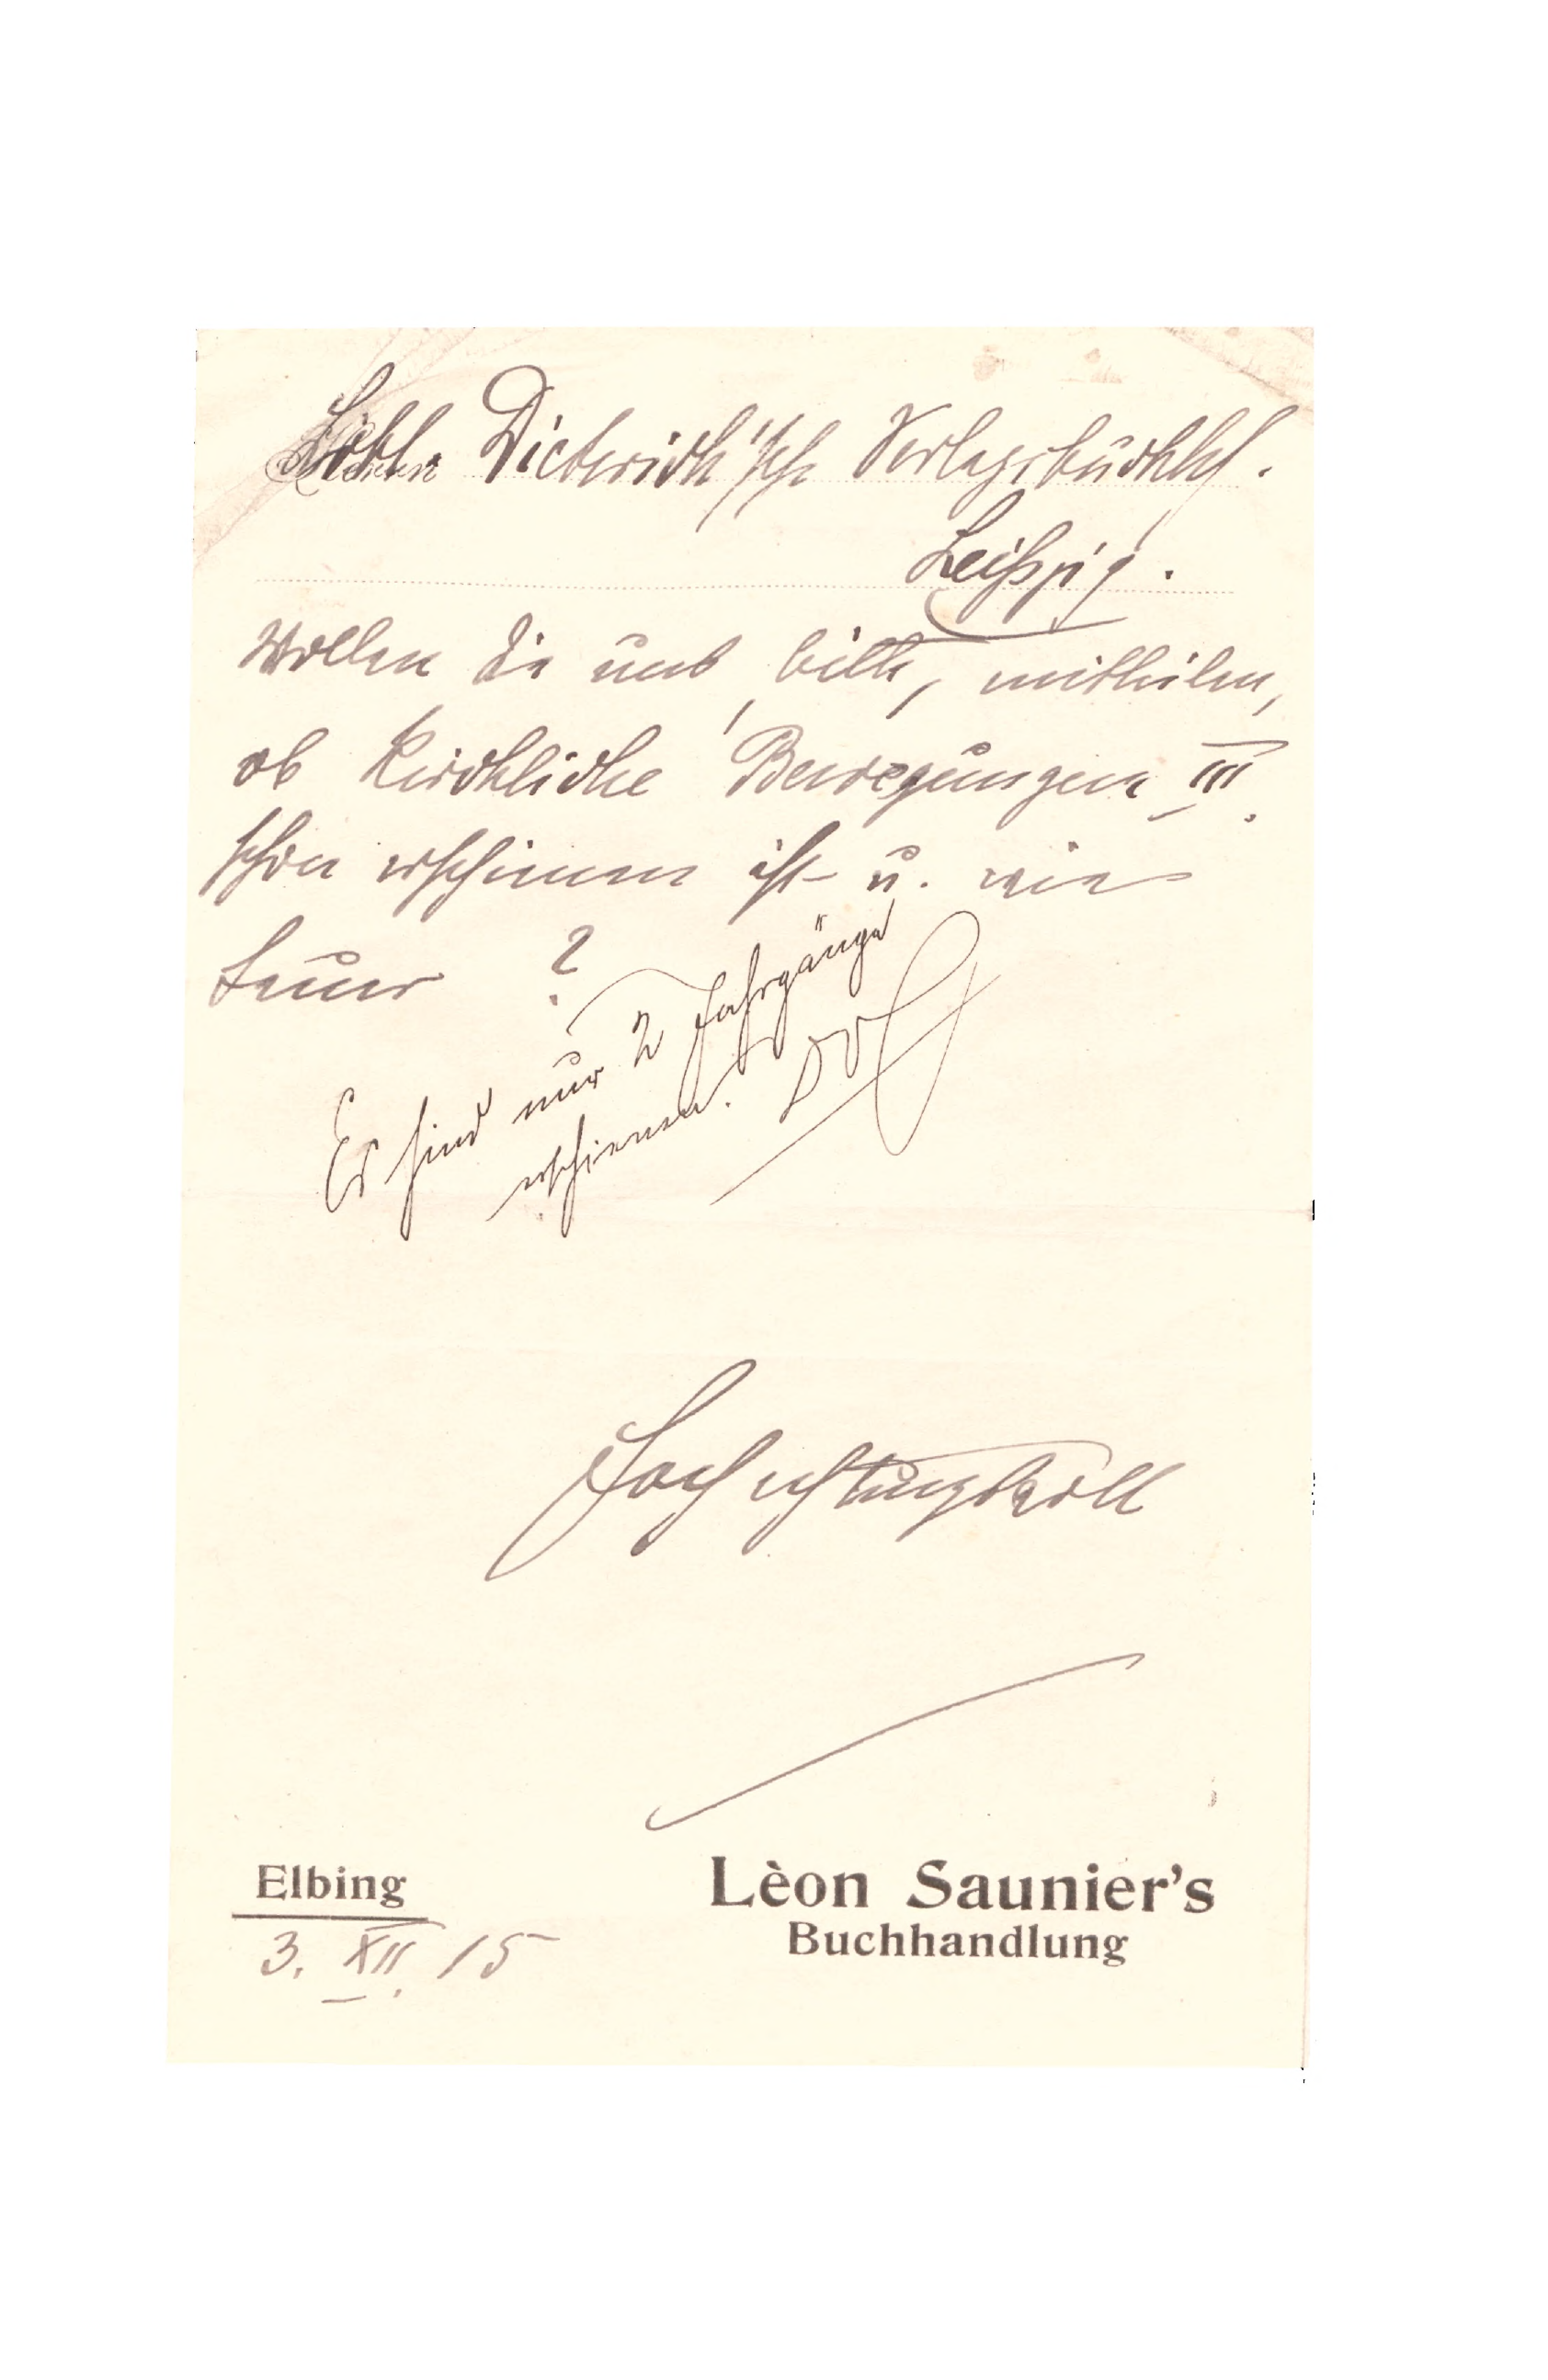 Löbl. Dieterich'sche Verlagsbuchhdl.
Leipzig.
Wollen Sie uns, bitte, mitteilen,
ob Kirchliche Bewegungen III.
schon erschienen ist u. wie
teuer ?
Es sind nur 2 Jahrgänge
erschienen.
Hochachtungsvoll
Elbing
3. XII. 15
Lèon Saunier's
Buchhandlung